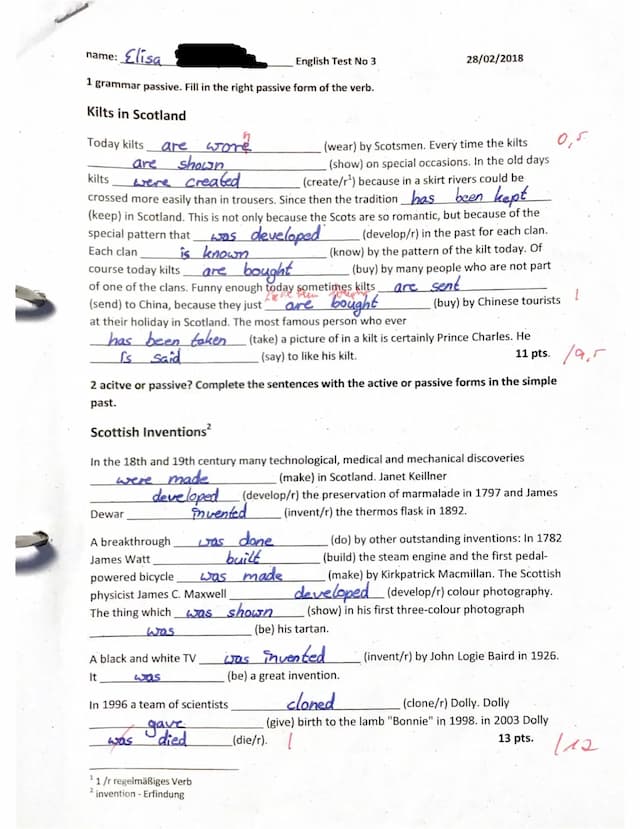 name: Elisa English Test No 3 28/02/2018
1 grammar passive. Fill in the right passive form of the verb.
Kilts in Scotland
Today kilts are wore n (wear) by Scotsmen. Every time the kilts 0,5
are shown (show) on special occasions. In the old days
kilts were created (create/r¹) because in a skirt rivers could be
crossed more easily than in trousers. Since then the tradition has been kept
(keep) in Scotland. This is not only because the Scots are so romantic, but because of the
special pattern that was developed (develop/r) in the past for each clan.
Each clan is known (know) by the pattern of the kilt today. Of
course today kilts are bought (buy) by many people who are not part
of one of the clans. Funny enough today sometimes kilts are sent
(send) to China, because they just are bought (buy) by Chinese tourists 1
at their holiday in Scotland. The most famous person who ever
has been taken (take) a picture of in a kilt is certainly Prince Charles. He
is said (say) to like his kilt. 11 pts. /9,5
2 acitve or passive? Complete the sentences with the active or passive forms in the simple
past.
Scottish Inventions²
In the 18th and 19th century many technological, medical and mechanical discoveries
were made (make) in Scotland. Janet Keillner
developed (develop/r) the preservation of marmalade in 1797 and James
Dewar invented (invent/r) the thermos flask in 1892.
A breakthrough was done (do) by other outstanding inventions: In 1782
James Watt built (build) the steam engine and the first pedal-
powered bicycle was made (make) by Kirkpatrick Macmillan. The Scottish
physicist James C. Maxwell developed (develop/r) colour photography.
The thing which was shown (show) in his first three-colour photograph
was (be) his tartan.
A black and white TV was invented (invent/r) by John Logie Baird in 1926.
It was (be) a great invention.
In 1996 a team of scientists cloned (clone/r) Dolly. Dolly
gave (give) birth to the lamb "Bonnie" in 1998. in 2003 Dolly
was died (die/r). 1 13 pts. /12
¹ 1 /r regelmäßiges Verb
² invention - Erfindung